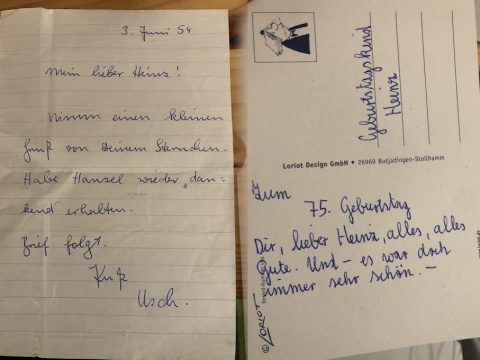 3. Juni 54
Mein lieber Heinz!
Nimm einen kleinen
Gruß von Deinem Sternchen.
Habe Hansel wieder „dan-
kend“ erhalten.
Brief folgt.
Kuß
Usch.
Geburtstagskind
Heinz
Loriot Design GmbH • 26969 Butjadingen-Stollhamm
Zum
75. Geburtstag
Dir, lieber Heinz, alles, alles
Gute. Und – es war doch
immer sehr schön. –
© LORIOT